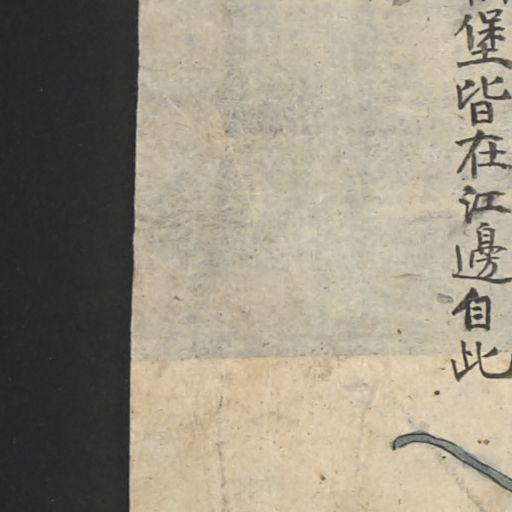 堡皆在江邊自此